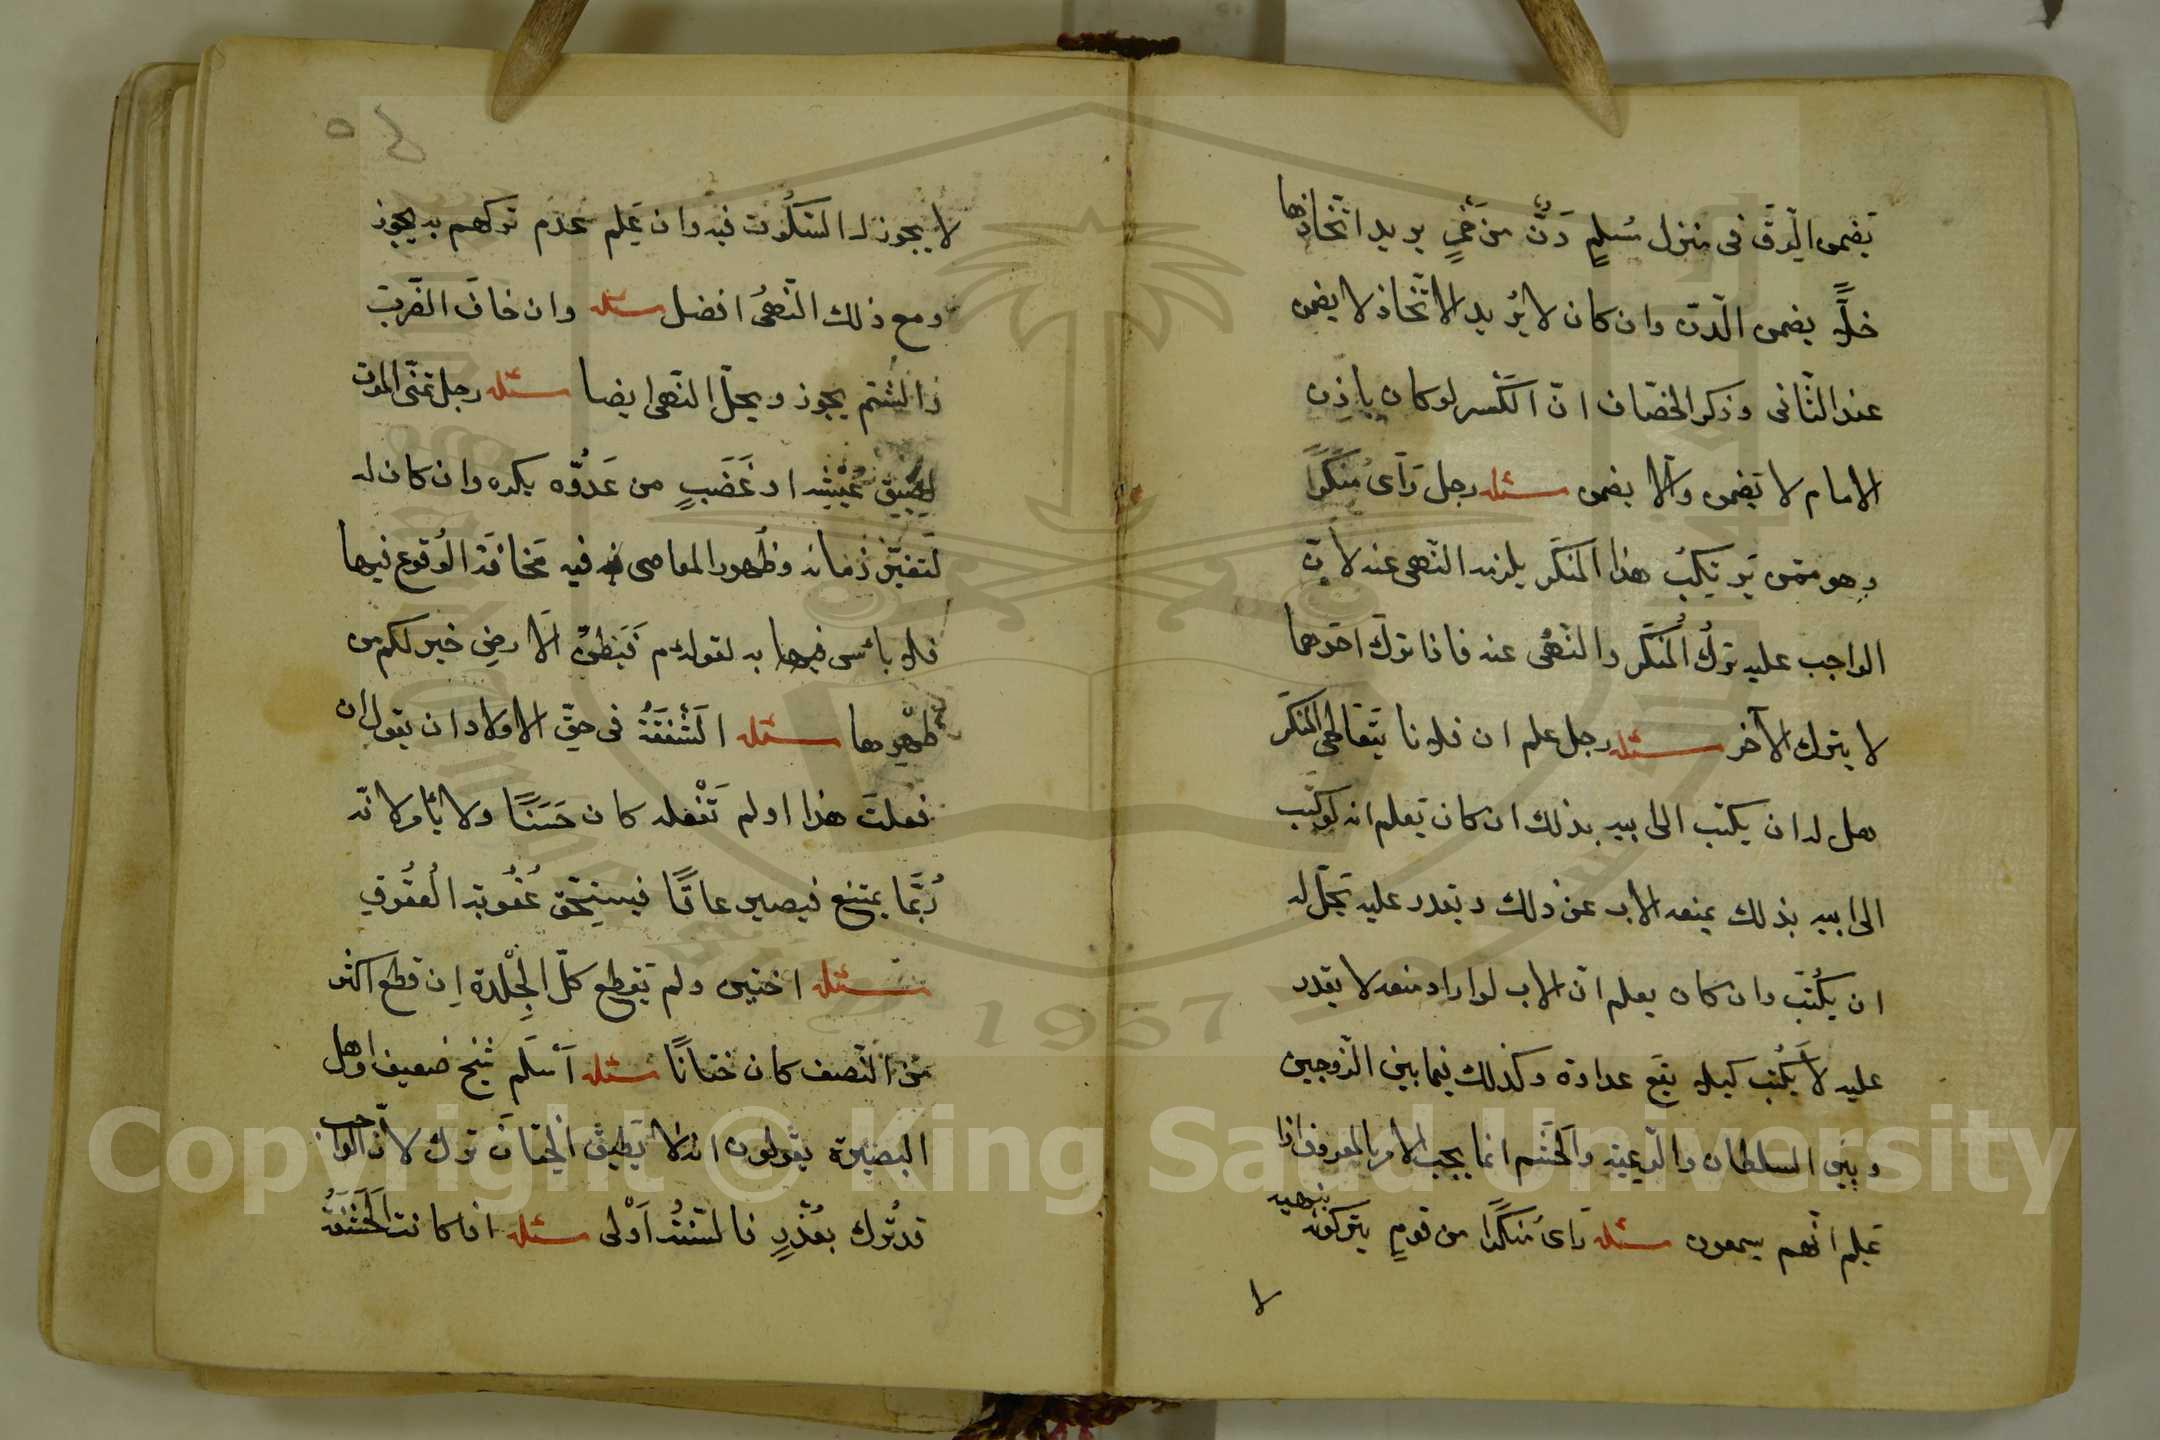 يضمن الزق فى منزل مسلم دنّ من خمر يريد اتخاذها
خلاًّ يضمن الدن وان كان لا يُريد الاتخاذ لا يضمن
عند الثانى وذكر الخصاف انّ الكَسر لو كان باذن
الامام لا يَضمن وآلا يضمن مسئله رجل رَأى مُنكرًا
وهو ممّن يَرتكِبُ هذا المنكر يلزمه النّهى عنه لانّ
الواجب عليه تركُ المُنكَر والنَهْى عنه فاذا ترك احدهما
لا يترك الآخر مسئله رجل علم ان فلانا يَتَعَاطى المنكَر
هل له ان يكتب الى ابيه بذلك ان كان يَعلم انه لو كَتَب
الى ابيه بذلك يمنعه الاب عن ذلك ويقدر عليه يَحلّ له
ان يكتُب وان كان يعلم انّ الاب لو اراد منعه لا يقدر
عليه لاَ يَكتُب كيلا يقع عداوة وكذلك فيما بين الزّوجين
وبين السلطان والرّعية والحَشَم انما يجب الامر بالمعروف اذا
عَلِم انّهم يسمعون مسئله رَأى مُنكَرًا من قومٍ يتركونه بنهيه
لا
٥٤
لا يجوز له السَكُوت فيه وان عَلِم عدم تركهم به يجوز
ومع ذلك النّهىُ افضل مسئله وان خافَ الضّرب
والشّتم يجوز ويحلّ النّهى ايضا مسئله رجل تمنّى الموت
لِضِيق عَيْشِه او غَضَبٍ من عَدُوّه يكره وان كان له
لَتَغيّرِ زمانه وظُهور المعاصى فيه مَخافَةَ الوُقوع فيها
فلا بأس به لقوله م فَبَطنُ الارضِ خير لكم من
ظَهْرِها مسئله الَشّفَقَةُ فى حقّ الاولاد ان يقول ان
فعلتَ هذا اولم تَفْعله كان حَسَنًا ولا يأمر لانّه
رُبَّما يمتنع فيصير عاقّا فيستحِقّ عُقُوبة العُقُوقِ
مسئله اختين ولم يَقطع كلّ الجِلْدة اِن قطع اكثر
من النّصف كان ختانًا مسئله أسْلَم شَيخ ضعيف واهل
البَصيرة يقولون انه لا يَطِيق الِختانَ ترك لانّ الواجب
قد يُترك بعُذْرٍ فالسّنّةُ اَوْلى مسئله اذا كانت الحَشَفَةُ